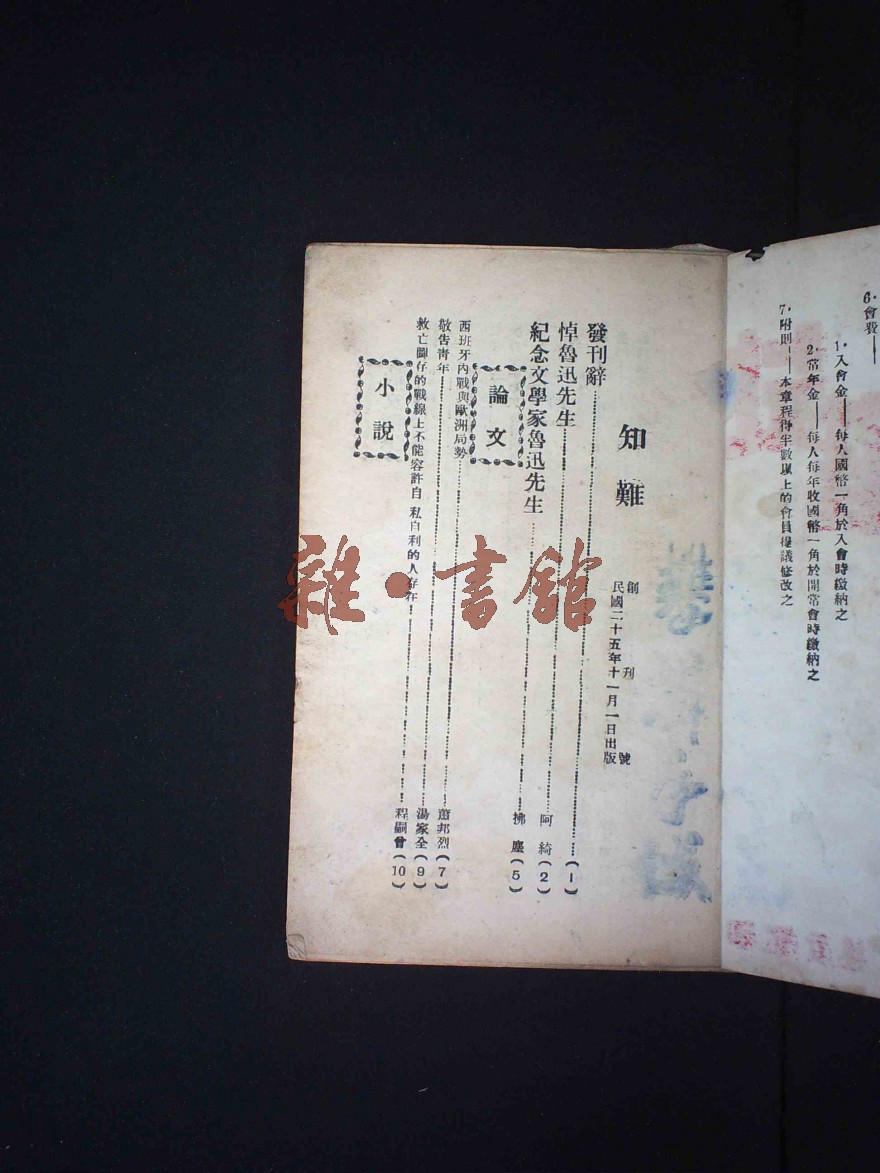 6．會費——
1．入會金——每人國幣一角於入會時繳納之
2．常年金——每人每年收國幣一角於開常會時繳納之
7．附則——本章程得半數以上的會員提議修改之
知難
創刊號
民國二十五年十一月一日出版
發刊辭（1）
悼魯迅先生 阿綺（2）
紀念文學家魯迅先生 拂塵（5）
論文
西班牙內戰與歐洲局勢 蕭邦烈（7）
敬告青年 湯家全（9）
救亡圖存的戰線上不能容許自私自利的人存在 程嗣曾（10）
小說
雜·書館